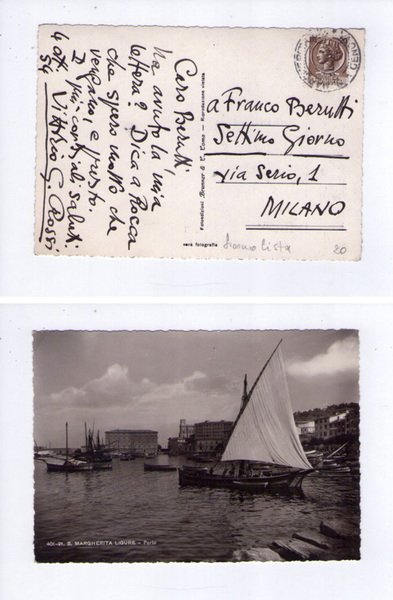 Caro Berutti,
ha avuto la mia
lettera? Dica a Rocca
che spero molto che
vengano e presto.
Di più, cordiali saluti
Vittorio G. Rossi
4 ott. 54
Fotoedizioni Brunner & C. Como — Riproduzione vietata
vera fotografia
a Franco Berutti
Settimo Giorno
via Serio, 1
MILANO
giornalista
20
401-21. S. MARGHERITA LIGURE - Porto